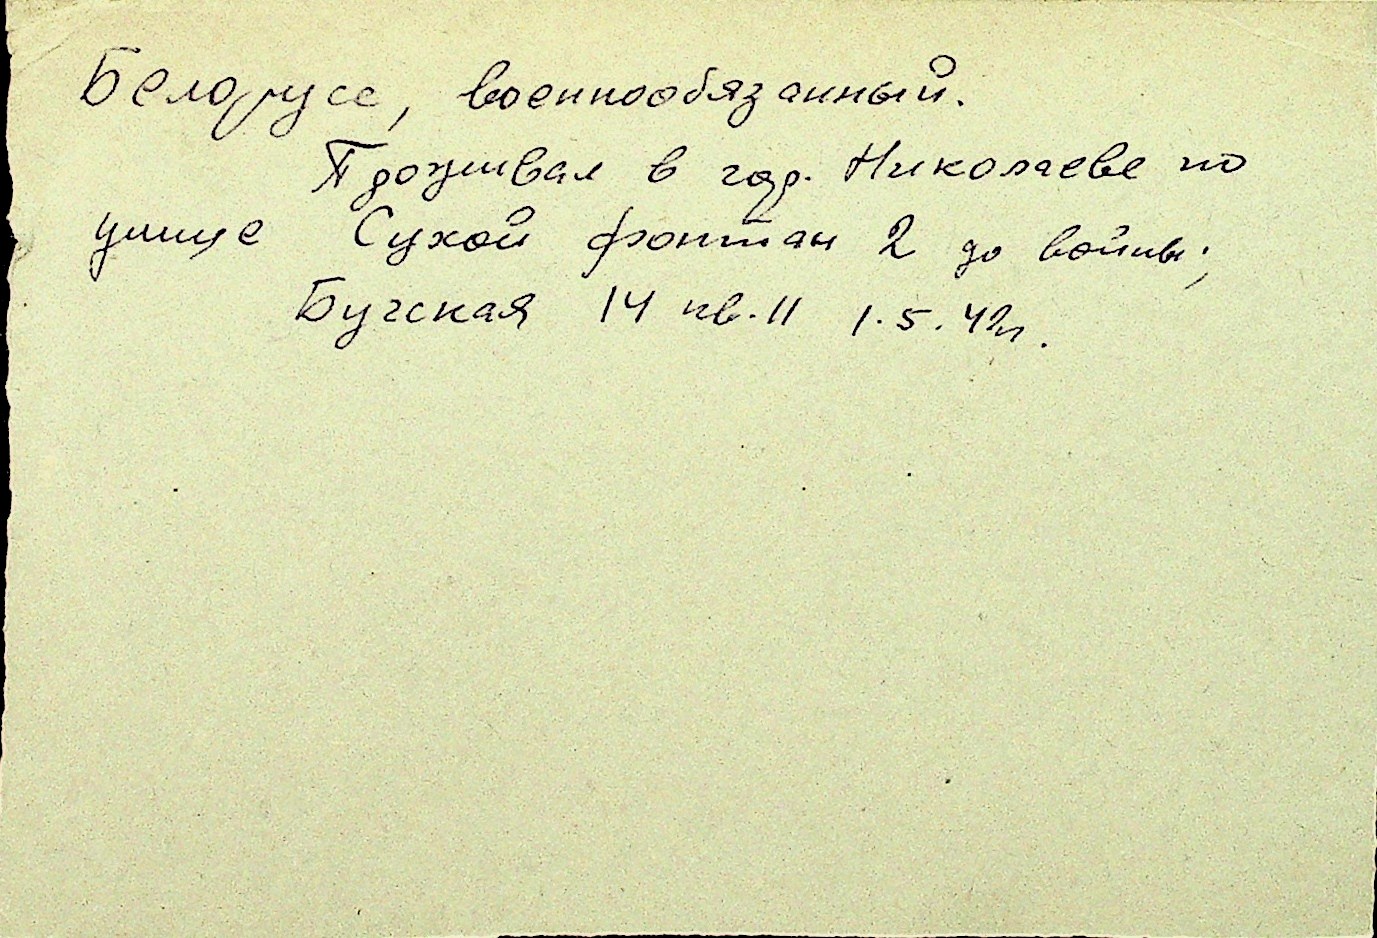 Белорусс, военнообязанный.
Проживал в гор. Николаеве по
улице Сухой фонтан 2 до войны;
Бугская 14 кв. 11 1.5.42г.